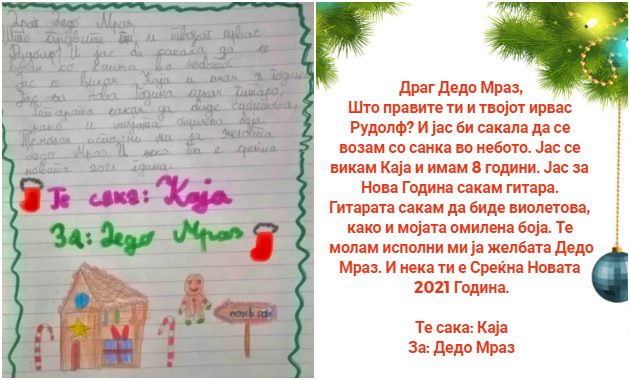 Драг Дедо Мраз,
Што правите ти и твојот ирвас
Рудолф? И јас би сакала да се
возам со санка во небото.
Јас се викам Каја и имам 8 години.
Јас за Нова Година сакам гитара.
Гитарата сакам да биде виолетова,
како и мојата омилена боја.
Те молам исполни ми ја желбата
Дедо Мраз. И нека ти е Среќна
Новата 2021 Година.
Те сака: Каја
За: Дедо Мраз
north pole
Драг Дедо Мраз,
Што правите ти и твојот ирвас
Рудолф? И јас би сакала да се
возам со санка во небото. Јас се
викам Каја и имам 8 години. Јас за
Нова Година сакам гитара.
Гитарата сакам да биде виолетова,
како и мојата омилена боја. Те
молам исполни ми ја желбата Дедо
Мраз. И нека ти е Среќна Новата
2021 Година.
Те сака: Каја
За: Дедо Мраз